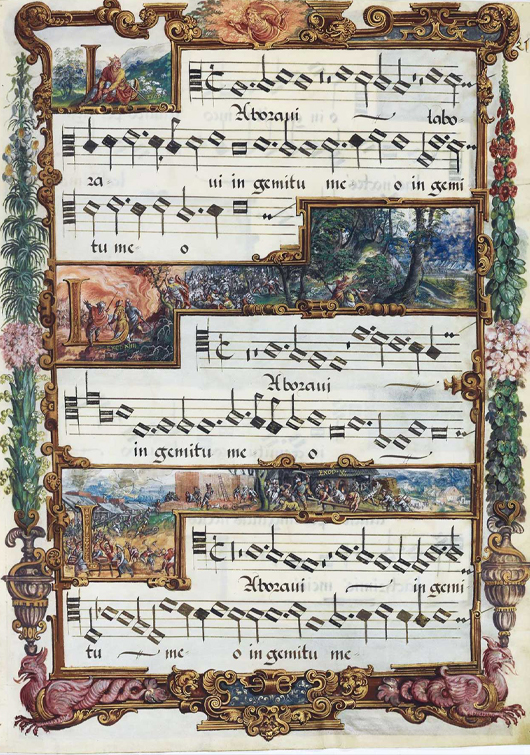 L
Aboraui labo-
ra ui in gemitu me o in gemi
tu me o
L
Aboraui
in gemitu me o
L
Aboraui in gemi
tu me o in gemitu me